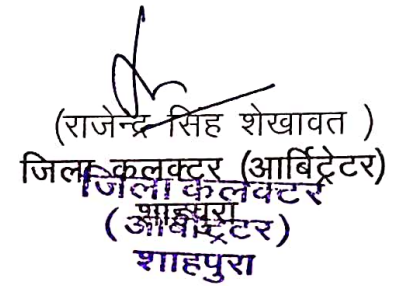 (राजेन्द्र सिंह शेखावत )
जिला कलक्टर (आर्बिट्रेटर)
जिला कलक्टर
शाहपुरा
(आर्बीट्रेटर)
शाहपुरा